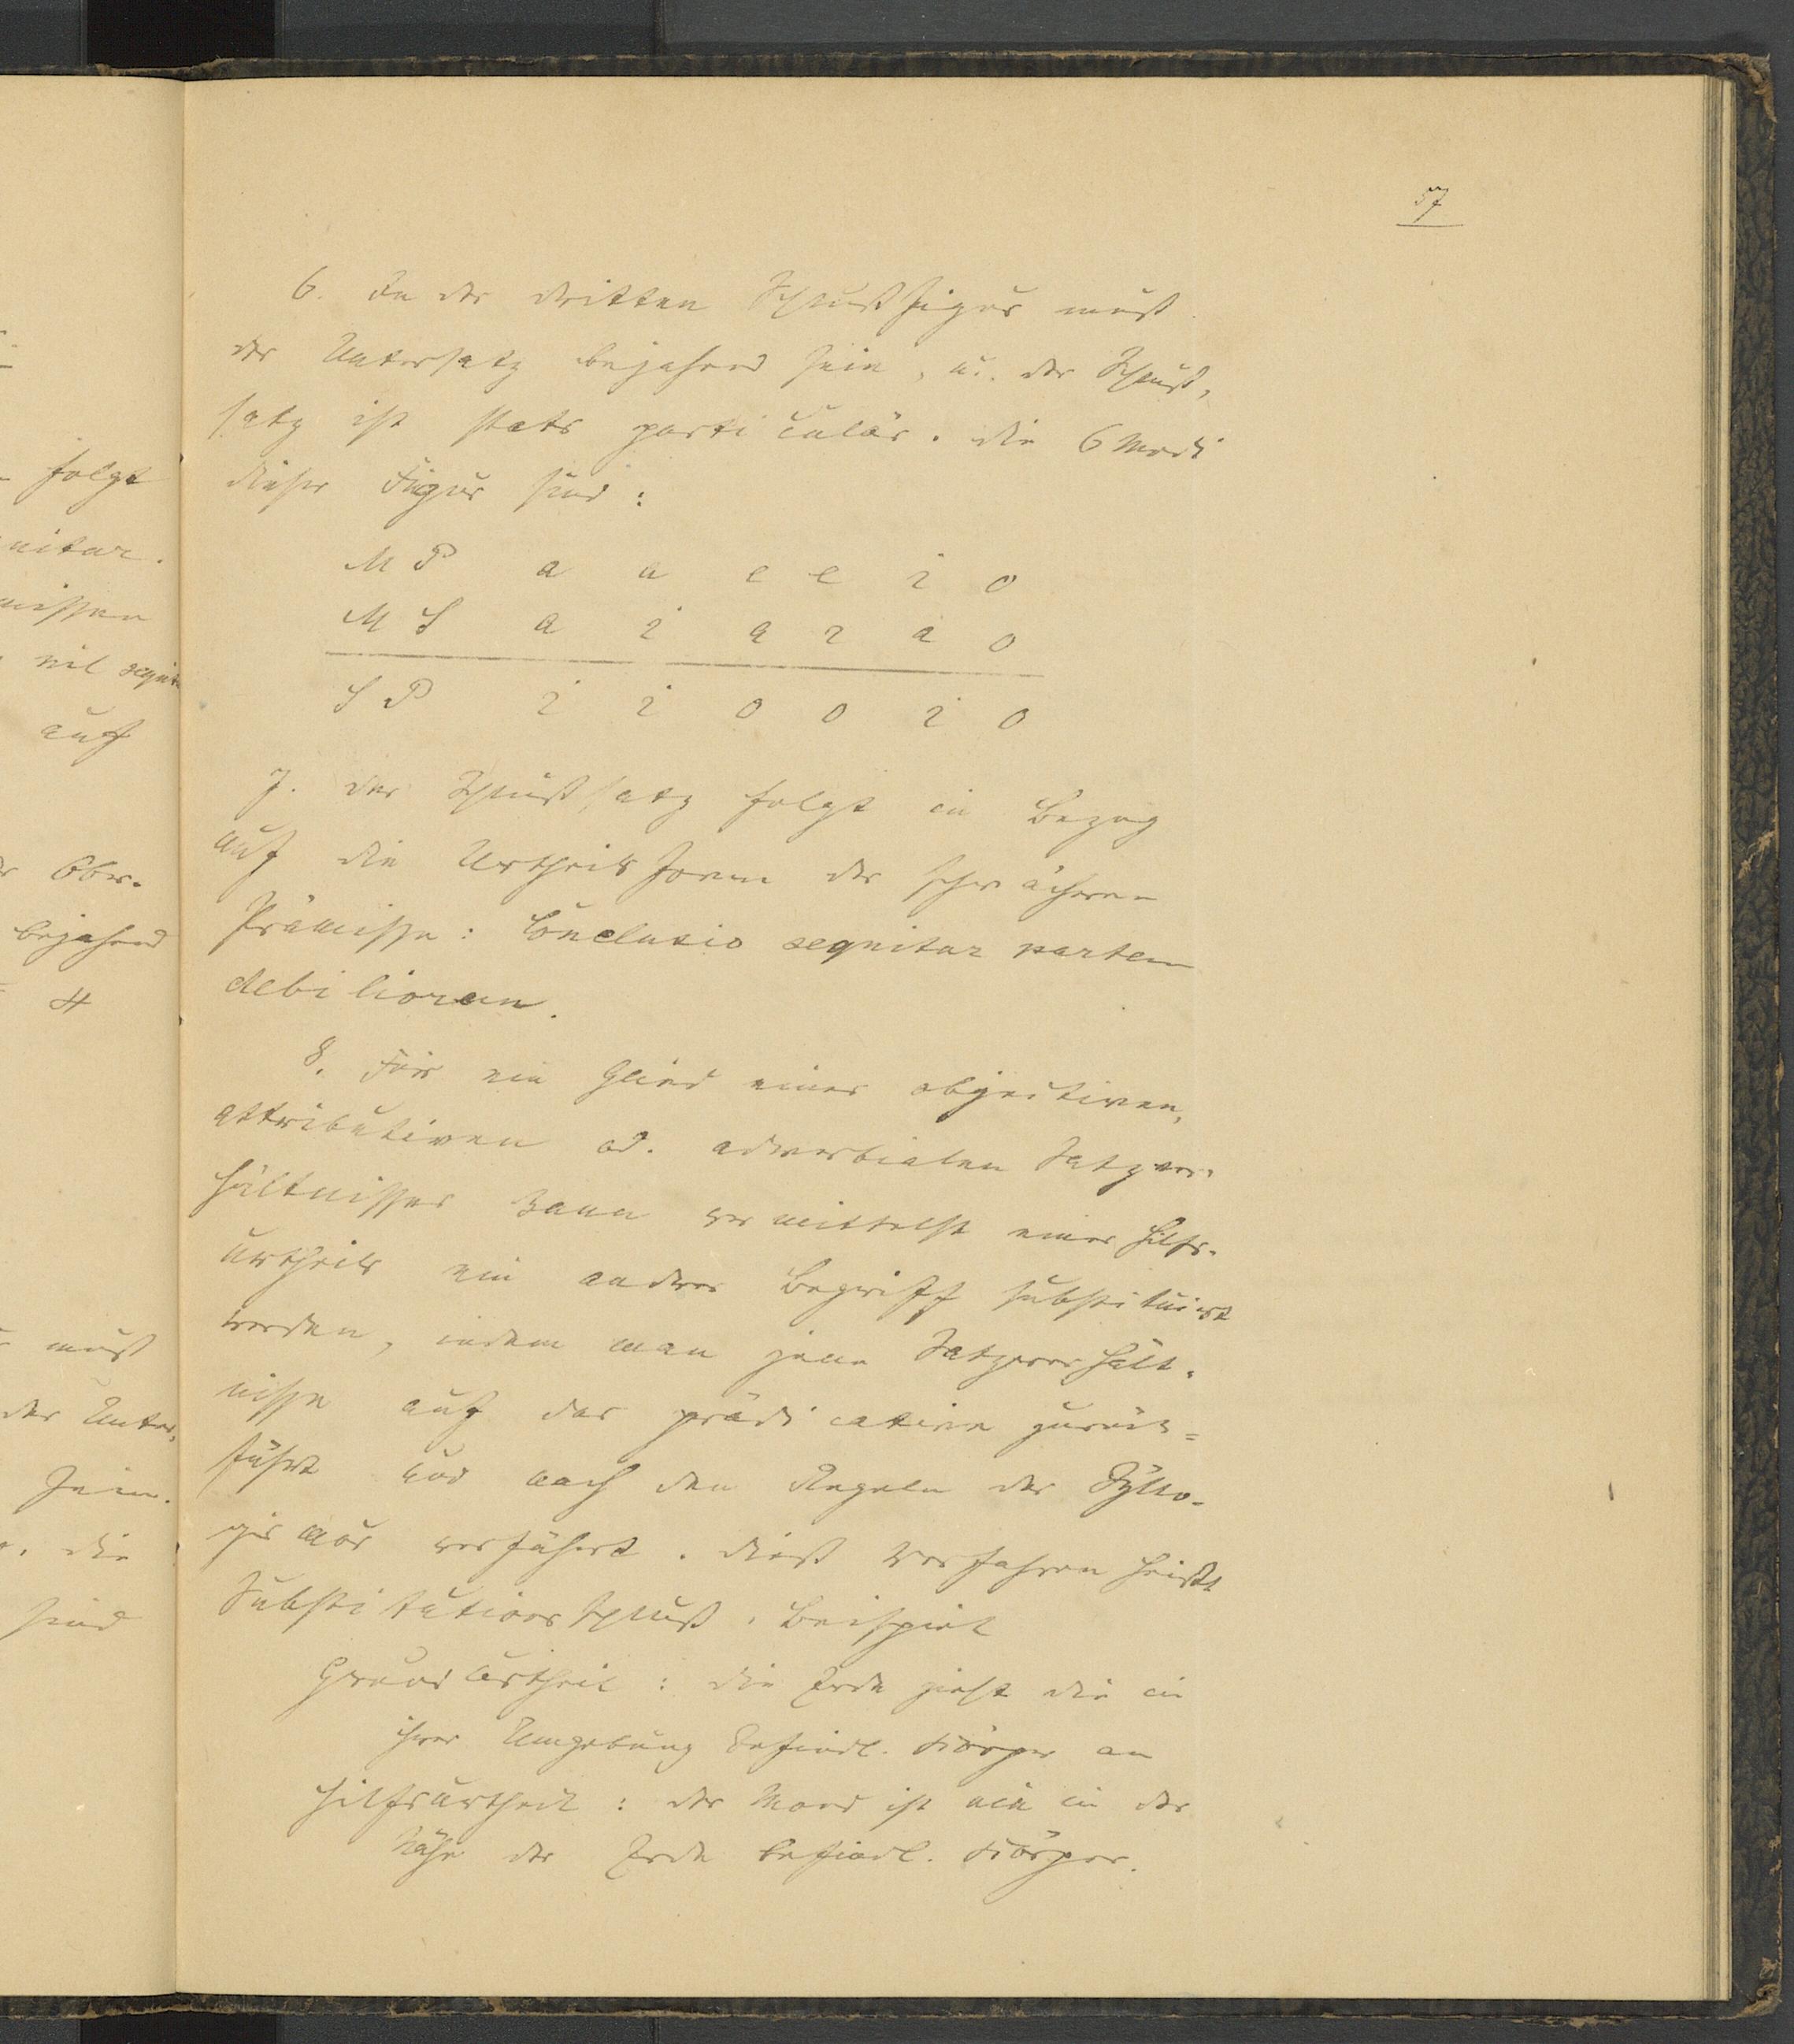 57
6. In der dritten Schlußfigur muß
der Untersatz bejahend sein, u. der Schluß-
satz ist stets particulär. Die 6 Modi
dieser Figur sind:
M P a a e e i o
M S a i a i a o
S P i i o o i o
7. Der Schlußsatz folgt in Bezug
auf die Urtheilsform der schwächeren
Prämisse: Conclusio sequitur partem
debiliorem.
8. Für ein Glied eines objectiven,
attributiven od. adverbialen Satzver-
hältnisses kann vermittelst eines Hilfs-
urtheils ein andrer Begriff substituirt
werden, indem man jene Satzverhält-
nisse auf das prädicative zurück=
führt und nach den Regeln des Syllo-
gismus verfährt. Dieß Verfahren heißt
Substitutionsschluß. Beispiel
Grundurtheil: die Erde zieht die in
ihrer Umgebung befindl. Körper an
Hilfsurtheil: der Mond ist ein in der
Nähe der Erde befindl. Körper.
folgt
nil sequit
auf
Ober-
bejahend
muß
der Unter-
sein.
die
sind